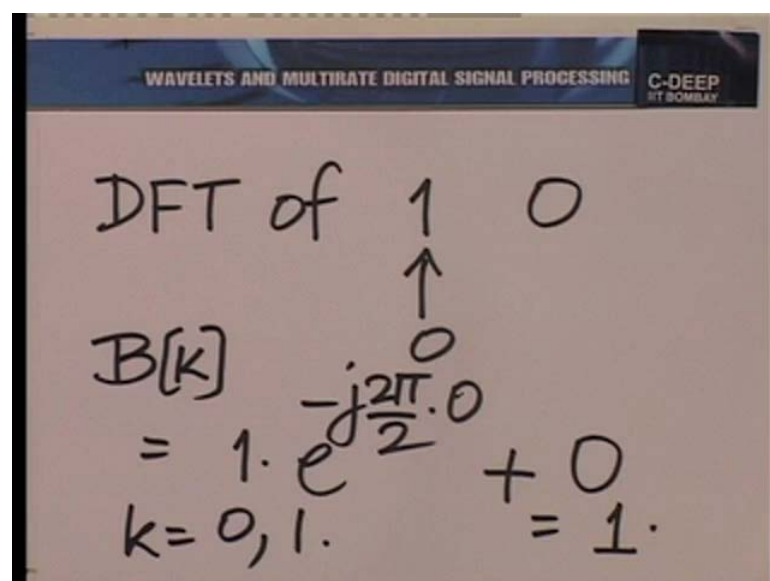 WAVELETS AND MULTIRATE DIGITAL SIGNAL PROCESSING
C-DEEP
IIT BOMBAY
DFT of 1 0
↑
0
B[k]
= 1. e^{-j\frac{2π}{2}.0} + 0
k= 0, 1. = 1.